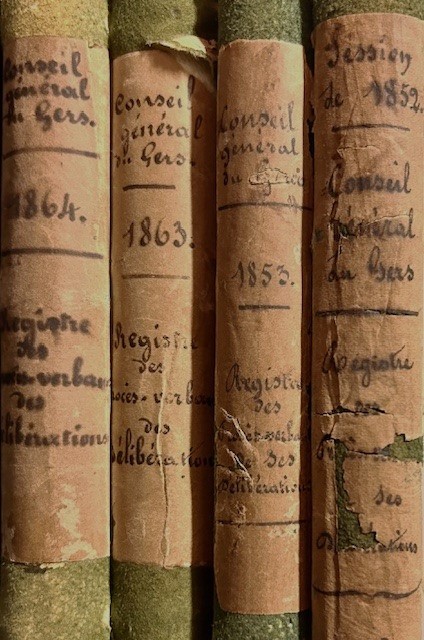 Conseil
général
du Gers.
1864.
Registre
des
procès-verbaux
des
délibérations
Conseil
général
du Gers.
1863.
Registre
des
procès-verbaux
des
délibérations
Conseil
général
du Gers
1853.
Registre
des
procès-verbaux
des
délibérations
Session
de 1852.
Conseil
général
du Gers
Registre
des
des
Délibérations